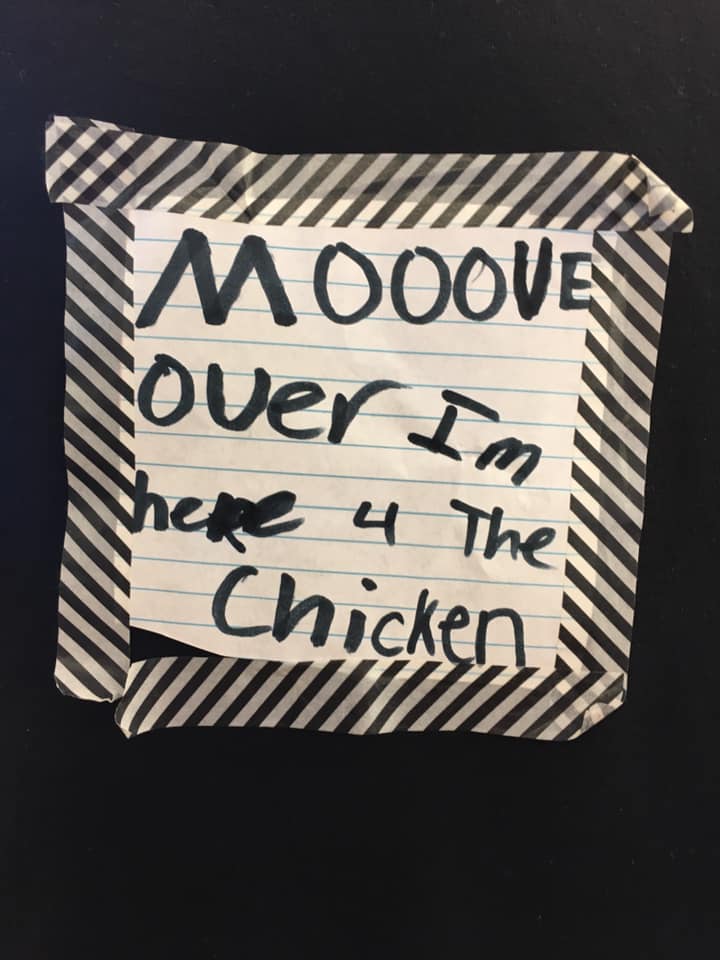 MOOOVE
over Im
here 4 The
Chicken